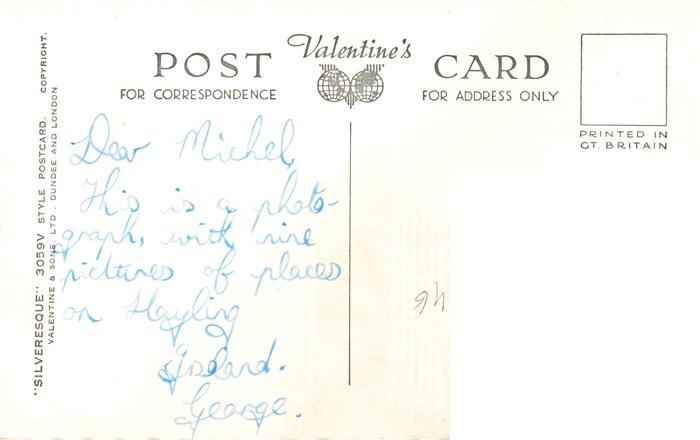 Valentine's
POST CARD
FOR CORRESPONDENCE
FOR ADDRESS ONLY
PRINTED IN
GT. BRITAIN
"SILVERESQUE" 3059V STYLE POSTCARD. COPYRIGHT.
VALENTINE & SONS, LTD. DUNDEE AND LONDON
Dear Michel,
This is a photo-
graph, with nine
pictures of places
on Hayling
Island.
George.